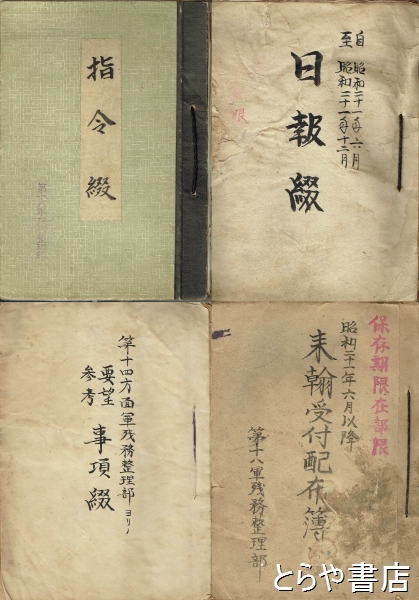 指令綴
自 昭和二十一年六月
至 昭和二十一年十二月
日報綴
限
第十四方面軍残務整理部ヨリノ
要望
参考
事項綴
保存期限在部限
昭和二十一年六月以降
来翰受付配布簿
第十八軍残務整理部
とらや書店